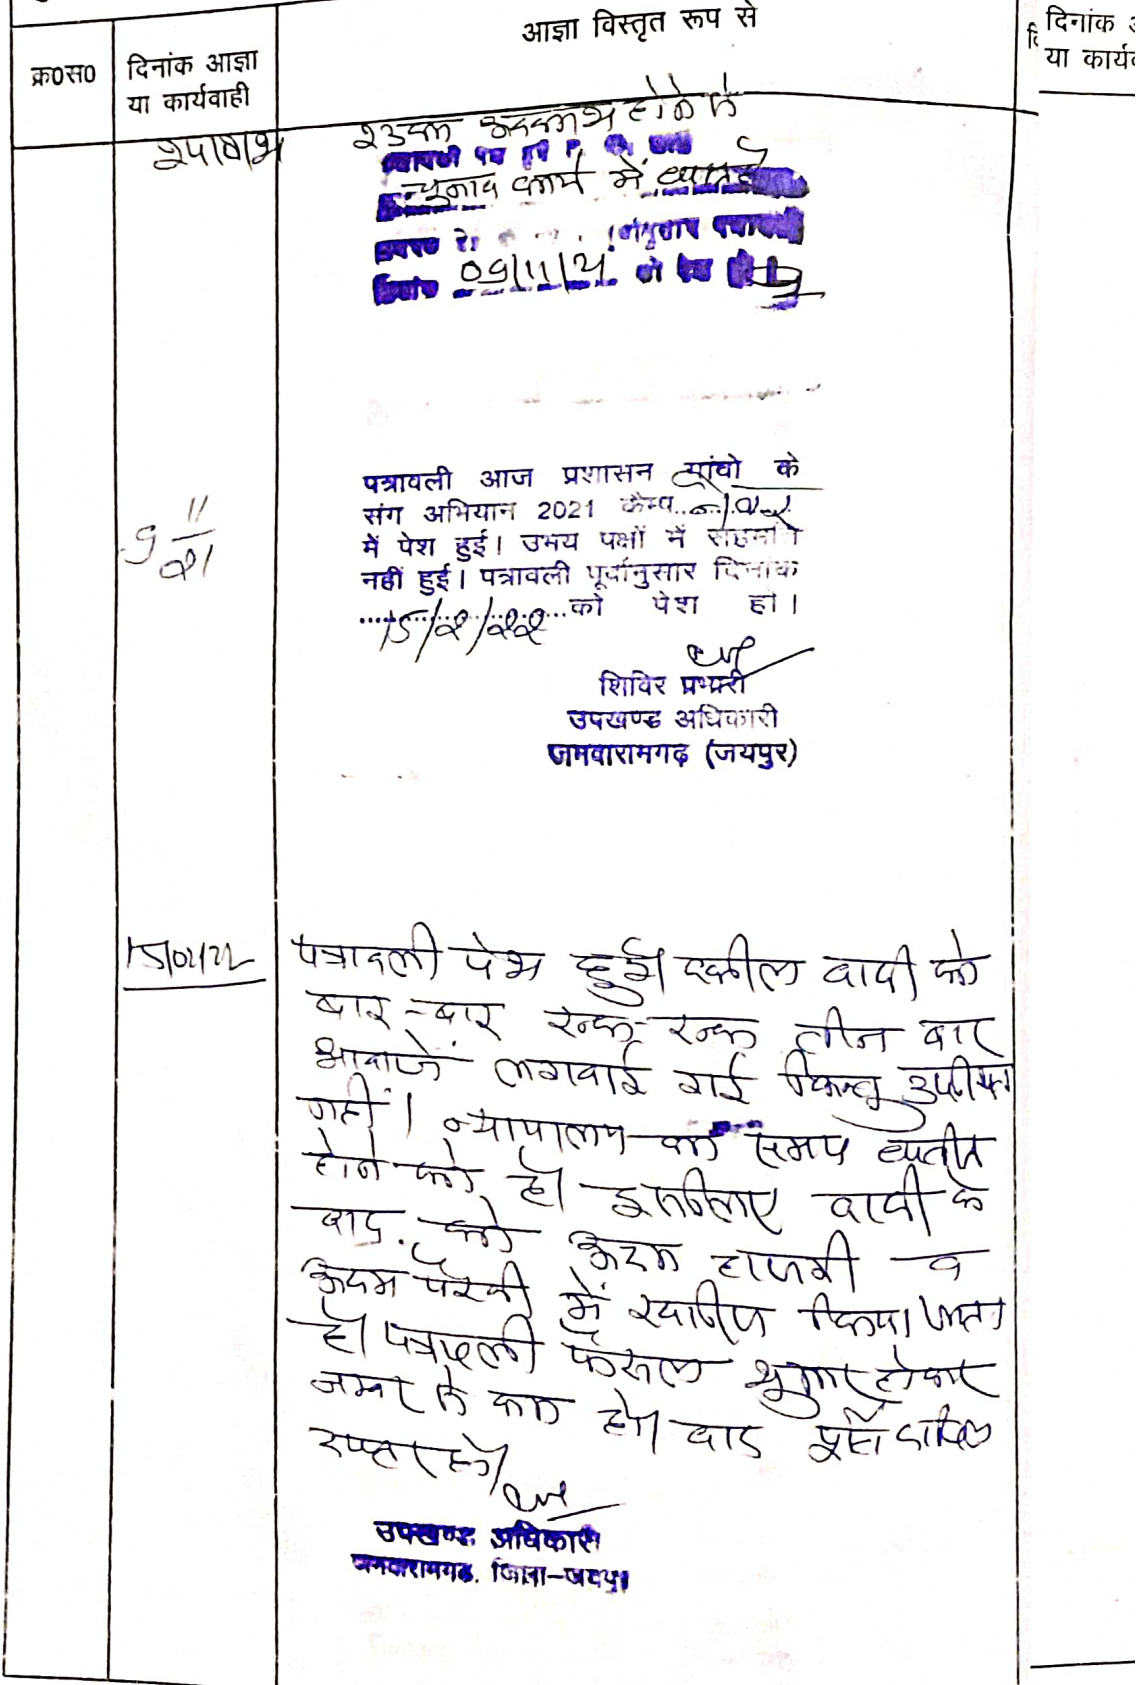 आज्ञा विस्तृत रूप से
क्र०स०
दिनांक आज्ञा
या कार्यवाही
दिनांक
या कार्य
होने से
चुनाव कार्य में व्यस्त है
09/11/21 को पेश हो
9 11/21
पत्रावली आज प्रशासन गांवो के
संग अभियान 2021 कैम्प
में पेश हुई। उभय पक्षों में सहमति
नहीं हुई। पत्रावली पूर्वानुसार दिनांक
15/2/22 को पेश हो।
शिविर प्रभारी
उपखण्ड अधिकारी
जमवारामगढ़ (जयपुर)
15/02/22
पत्रावली पेश हुई। वकील वादी को
बार-बार रूक-रूक तीन बार
आवाजें लगवाई गई किन्तु उपस्थित
नहीं। न्यायालय का समय व्यतीत
होने को है। इसलिए वादी के
वाद को अदम हाजरी व
अदम पैरवी में खारीज किया जाता
है। पत्रावली फैसल शुमार होकर
नम्बर से कम हो। बाद पूर्ति दाखिल
दफ्तर हो।
उपखण्ड अधिकारी
जमवारामगढ, जिला-जयपुर